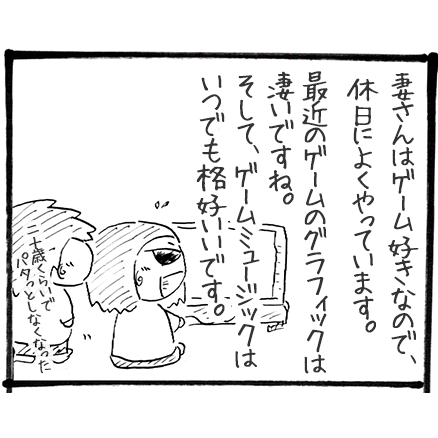 妻さんはゲーム好きなので、
休日によくやっています。
最近のゲームのグラフィックは
凄いですね。
そして、ゲームミュージックは
いつでも格好いいです。
二十歳くらいで
パタっとしなくなった